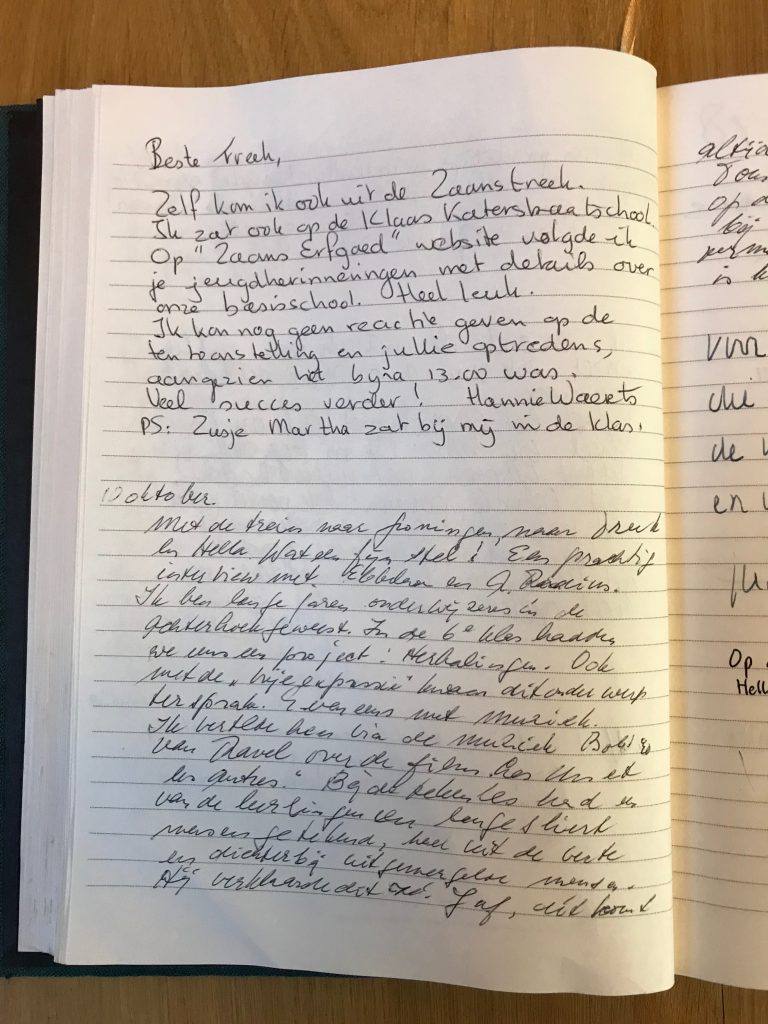 Beste Freek,
Zelf kom ik ook uit de Zaanstreek.
Ik zat ook op de Klaas Katersbaatschool.
Op "Zaans Erfgoed" website volgde ik
je jeugdherinneringen met details over
onze basisschool. Heel leuk.
Ik kon nog geen reactie geven op de
tentoonstelling en jullie optredens,
aangezien het bijna 13.00 was.
Veel succes verder! Hannie Waerts
PS: Zusje Martha zat bij mij in de klas.
10 oktober.
Met de trein naar Groningen, naar Freek
en Hella. Wat een fijn stel! Een prachtig
interview met en
Ik ben lange jaren onderwijzeres in de
achterhoek geweest. In de 6e klas hadden
we eens een project: Herhalingen. Ook
met de „vrije expressie" kwam dit onderwerp
ter sprake. Zo ook eens met muziek.
Ik vertelde hen via de muziek Bolero
van Ravel over de film „Les Uns et
les autres." Bij de tekenles had een
van de leerlingen een lange sliert
mensen getekend, heel uit de verte
en dichterbij uitgemergelde mensen.
Hij verklaarde dit zo. Juf, dit komt
altijd
op d
bij
is
voor
die
de
en
Op
Hell